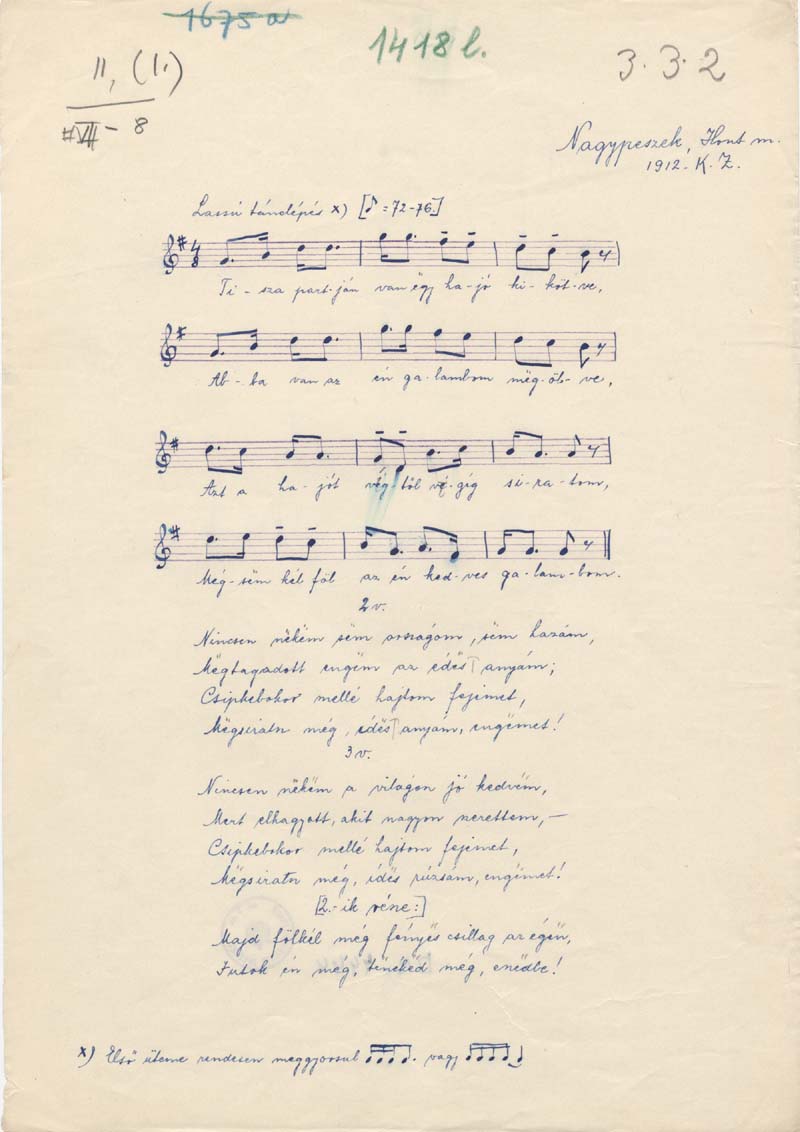 1675 a
1418 l.
II, (1.)
3.3.2
VII - 8
Nagypeszek, Hont m.
1912. K. Z.
Lassú tánclépés x) [♪ = 72-76]
4/8
Ti - sza part-ján van ëgy ha-jó ki-köt-ve,
Ab-ba van az én ga-lambom mëg-öl-ve,
Azt a ha-jót vég-től vé-gig si-ra-tom,
Még-sëm kél föl az én ked-ves ga-lam-bom.
2 v.
Nincsen nékëm sëm országom, sëm hazám,
Mëgtagadott engëm az édës anyám;
Csipkebokor mellé hajtom fejemet,
Mëgsiratn még, édës anyám, engëmet!
3 v.
Nincsen nékëm a világon jó kedvëm,
Mert elhagyott, akit nagyon szerettem, —
Csipkebokor mellé hajtom fejemet,
Mëgsiratn még, édës rúzsám, engëmet!
[2.-ik része:]
Majd fölkél még fényës csillag az égën,
Futok én még, még,
x) Első üteme rendesen meggyorsul vagy